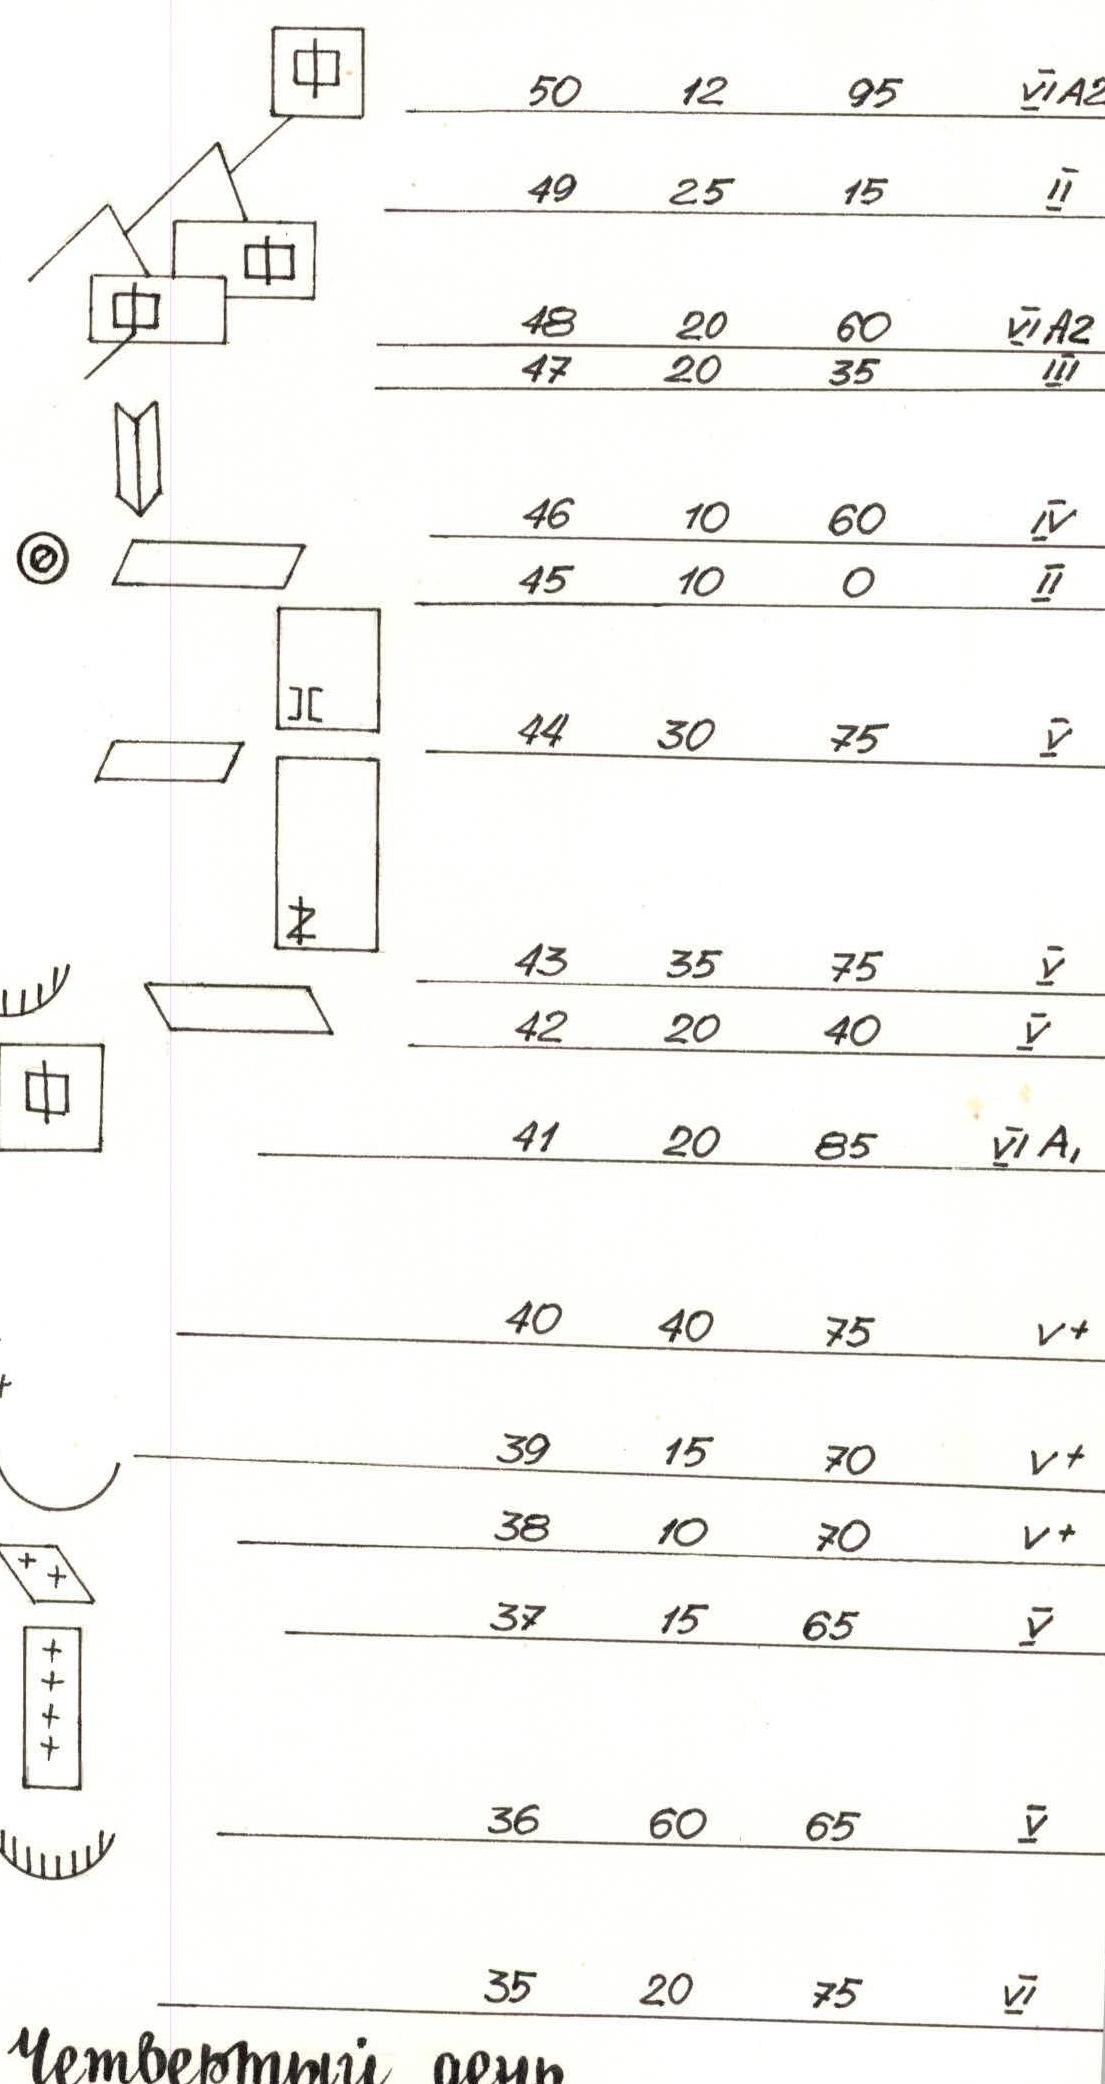 50 12 95 VI A2
49 25 15 II
48 20 60 VI A2
47 20 35 III
46 10 60 IV
45 10 0 II
44 30 75 V
43 35 75 V
42 20 40 V
41 20 85 VI A1
40 40 75 V+
39 15 70 V+
38 10 70 V+
37 15 65 V
36 60 65 V
35 20 75 VI
Четвертый день